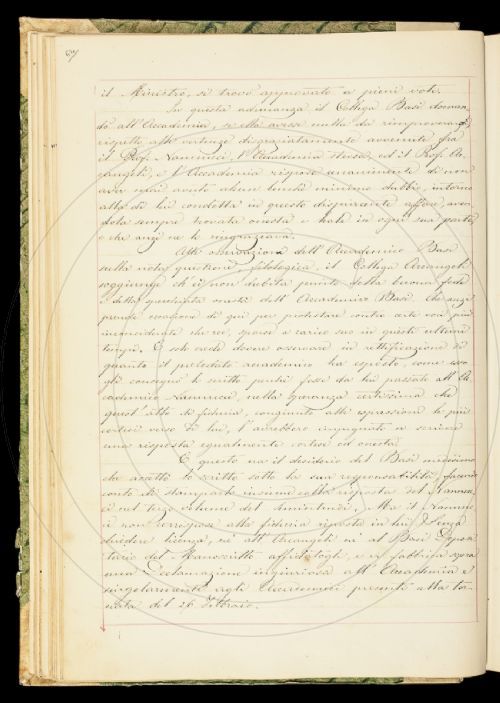 67
il Ministro, si trovò approvato a pieni voti.
In questa adunanza il Collega Basi doman-
dò all'Accademia, se ella avesse nulla da rimproverargli
rispetto alle vertenze disgraziatamente avvenute fra
il Prof. Nannucci, l'Accademia stessa, ed il Prof. Ar-
cangeli, e l'Accademia rispose unanimemente di non
aver mai avuto alcun benché minimo dubbio, intorno
alla di lui condotta in questo dispiacente affare, aven-
dola sempre trovata onesta e leale in ogni sua parte,
e che anzi ne lo ringraziava.
Alle osservazioni dell'Accademico Basi
sulla nota questione filologica, il Collega Arcangeli
soggiunge ch'ei non dubita punto della buona fede
e della specchiata onestà dell'Accademico Basi, che anzi
prende occasione di qui per protestare contro certe voci poco
inconsiderate che sparse a carico suo in questi ultimi
tempi. E solo crede dovere osservare in rettificazione di
quanto il prelodato accademico ha esposto, come esso
gli consegnò lo scritto perché fosse da lui passato all'Ac-
cademico Nannucci, nella speranza certissima che
quest'atto di fiducia, congiunto alle espressioni le più
cortesi verso di lui, l'avrebbero impegnato a scrivere
una risposta egualmente cortese ed onesta.
E questo era il desiderio del Basi medesimo
che accettò lo scritto sotto la sua responsabilità, facendo
conto di stamparlo insieme colla risposta del Nannucci
Ma il Nannucci
non corrispose alla fiducia riposta in lui. Senza
chiedere licenza, né all'Arcangeli né al Basi Deposi-
tario del Manoscritto affidatogli, e vi fabbrica sopra
una Declamazione ingiuriosa all'Accademia e
singolarmente agli Accademici presenti alla tor-
nata del 26 Febbraio.